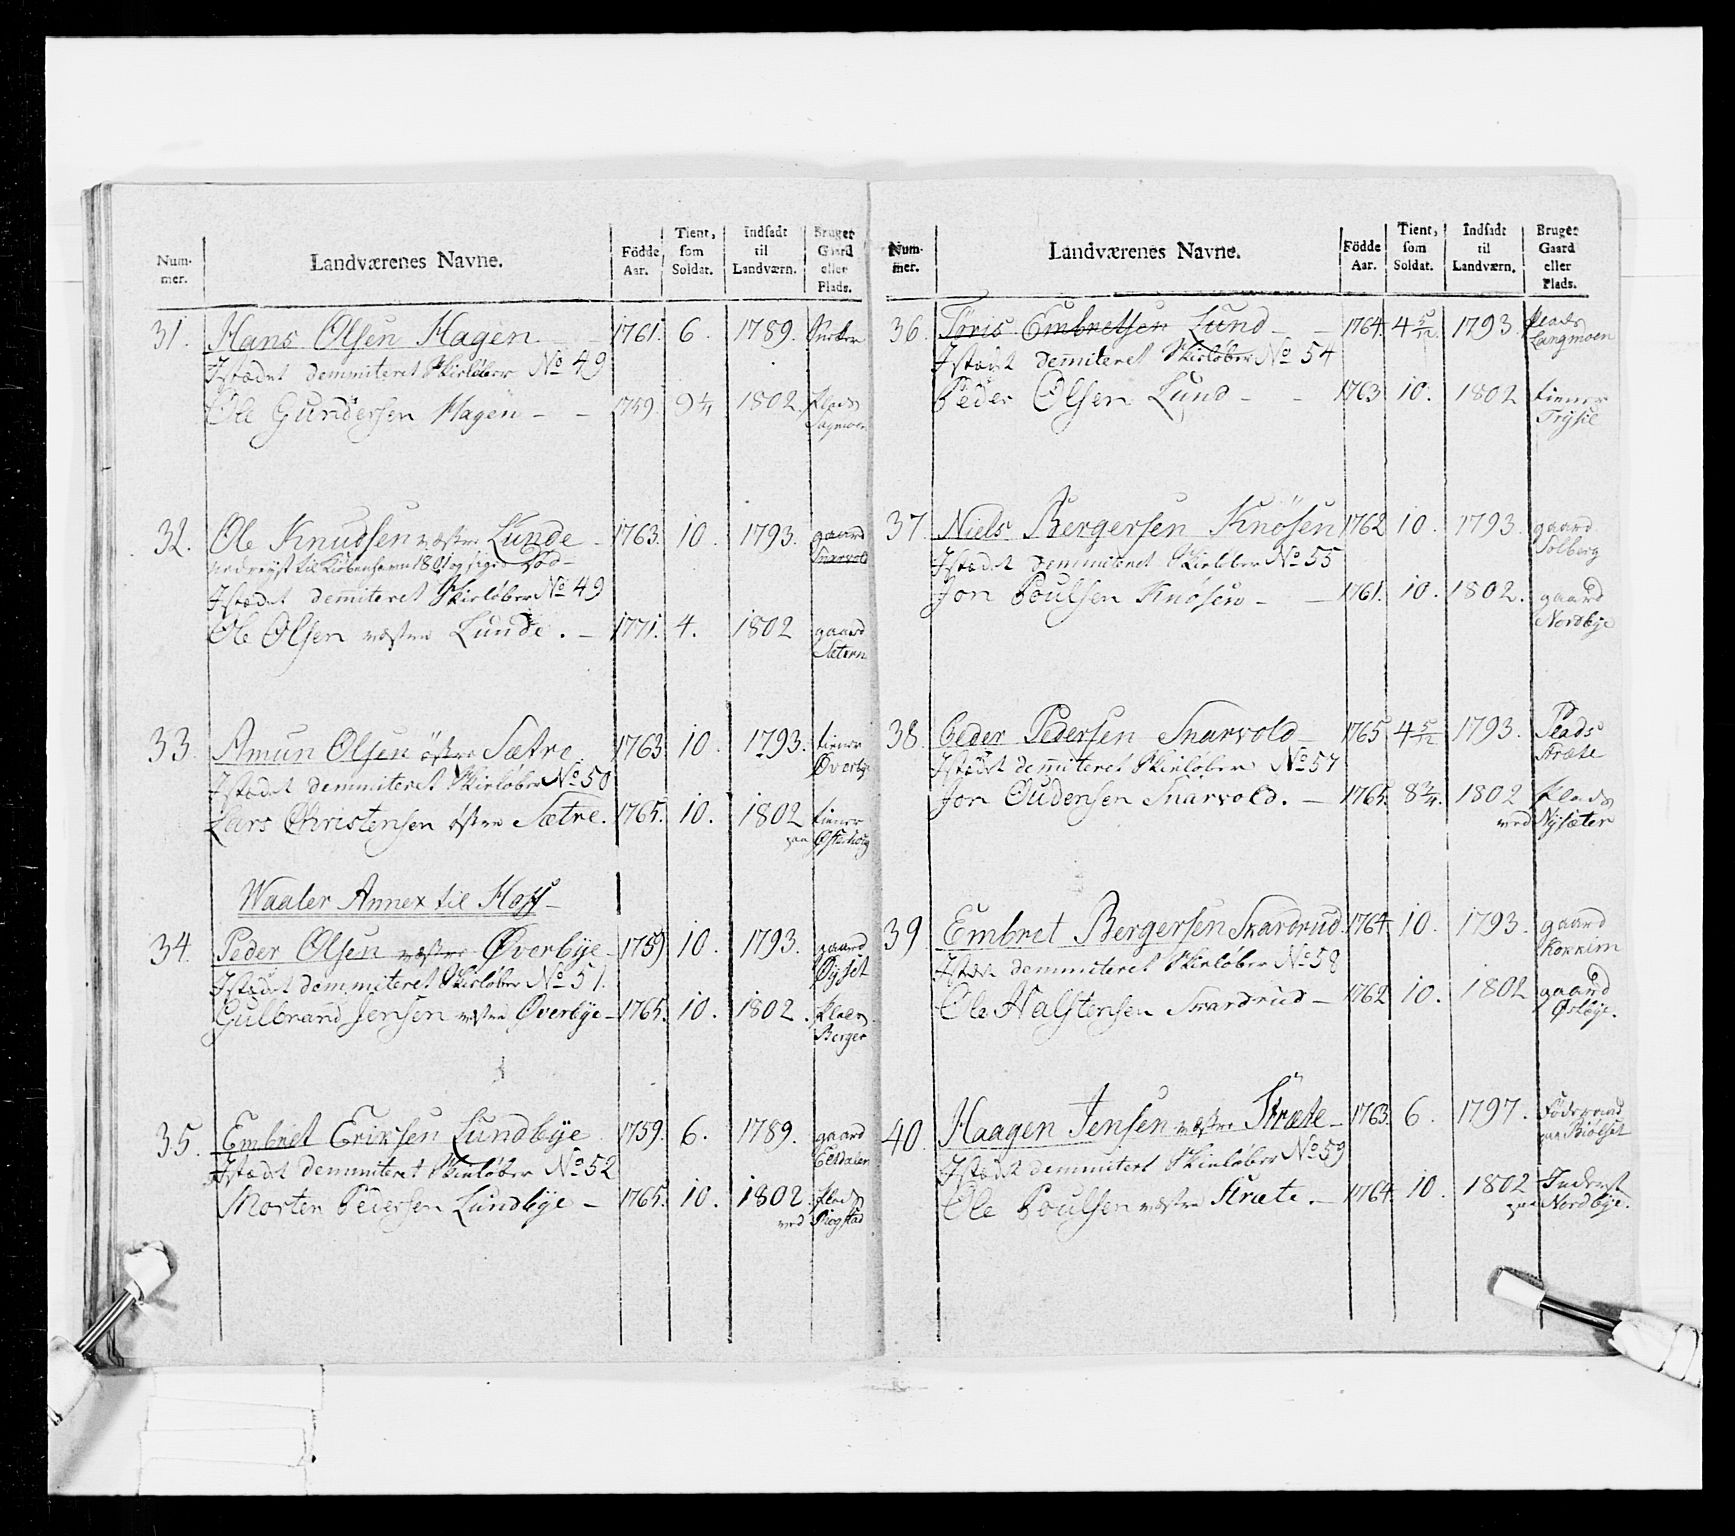 Num-
mer.
Landværenes Navne.
Födde
Aar.
Tient,
som
Soldat.
Indsadt
til
Landværn.
Bruger
Gaard
eller
Plads.
31. Hans Olsen Hagen 1761. 6. 1789.
Istædet demmiteret Skieløber No 49
Ole Gundersen Hagen - - 1759. 9 1/4 1802. Plads
32. Ole Knudsen vestre Lunde - 1763. 10. 1793. gaard
Snarvold
Istædet demiteret Skieløber No 49
Ole Olsen vestre Lunde. - 1771. 4. 1802 gaard
Sætern
33. Amun Olsen östre Sætre 1763. 10. 1793. tiener
Øverby
Istædet demmiteret Skieløber No 50
Lars Christensen østre Sætre. 1765. 10. 1802 tiener
paa
Waaler Annex til Hoff -
34. Peder Olsen vestre Øverbye - 1759 10. 1793. gaard
Øyset
Istædet demmiteret Skieløber No 51.
Gulbrand Jensen vestre Øverbye - 1765. 10. 1802. Plads
Berger
35. Embret Eriksen Lundbye 1759. 6. 1789. gaard
Istædet demmiteret Skieløber No 52
Morten Pedersen Lundbye - 1765. 10. 1802 Plads
ved Piogstad
Num-
mer.
Landværenes Navne.
Födde
Aar.
Tient,
som
Soldat.
Indsadt
til
Landværn.
Bruger
Gaard
eller
Plads.
36. Tøris Embretsen Lund - - 1764. 4 5/12. 1793. Plads
Langmoen
Istædet demmiteret Skieløber No 54
Peder Olsen Lund - - 1763 10. 1802 tiener
Trysil
37. Niels Bergersen Knøsen 1762 10. 1793. gaard
Solberg
Istædet demmiteret Skieløber No 55
Jon Poulsen Knøsen - - 1761. 10. 1802. gaard
Nordbye
38 Peder Pedersen Snarvold - 1765 4 5/12 1793. Plads
Stræte
Istædet demiteret Skieløber No 57
Jon Oudensen Snarvold. - 1765. 8 3/4. 1802 Plads
ved Nysæter
39 Embret Bergersen Skardrud. 1764 10. 1793. gaard
Istæd demmiteret Skieløber No 58
Ole Halstensen Skardrud - 1762 10. 1802 gaard
Østbye.
40. Haagen Jensen vestre Stræte - 1763. 6. 1797. Föderaad
paa Biølset
Istædt demmitert Skieløber No 59
Ole Poulsen vestre Stræte. - 1764. 10. 1802 Inderst
paa Nordbye.